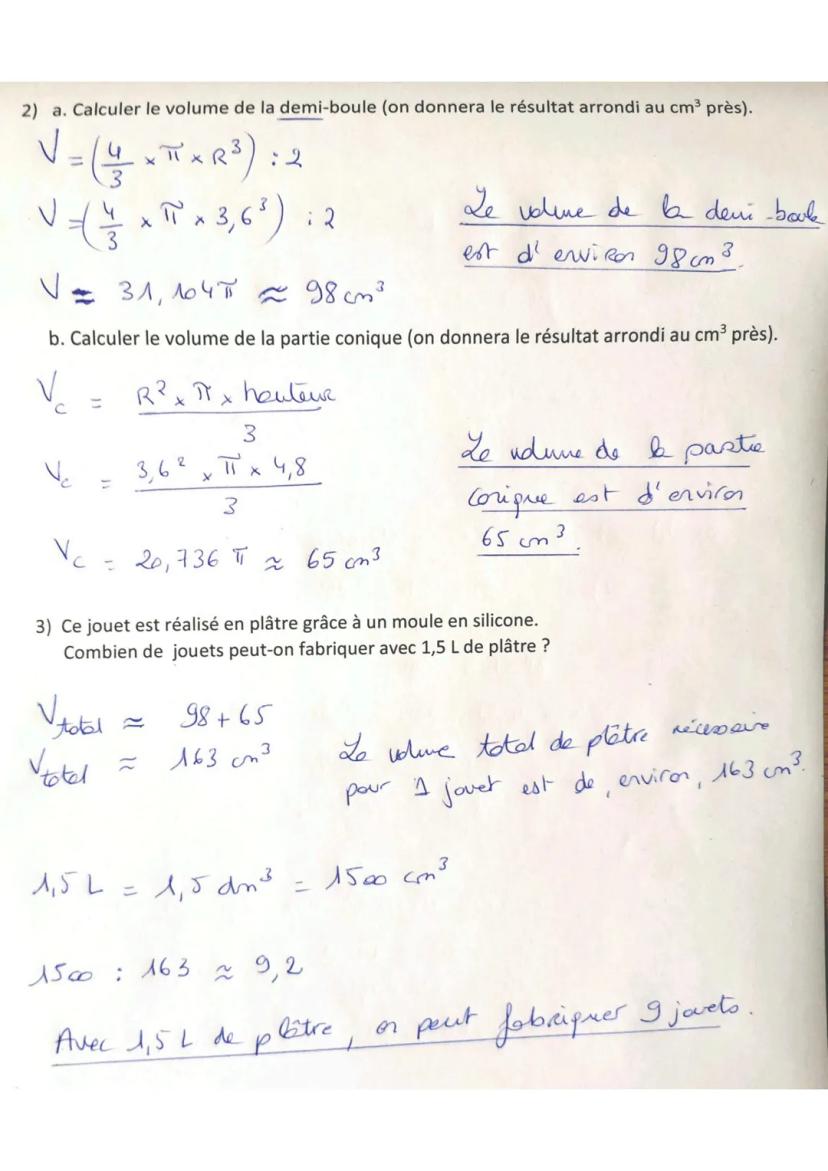 2) a. Calculer le volume de la demi-boule (on donnera le résultat arrondi au cm³ près).
V = (4/3 × π × R³) : 2
V = (4/3 × π × 3,6³) : 2
V = 31,104π ≈ 98 cm³
Le volume de la demi-boule
est d'environ 98 cm³.
b. Calculer le volume de la partie conique (on donnera le résultat arrondi au cm³ près).
Vc = R² × π × hauteur / 3
Vc = 3,6² × π × 4,8 / 3
Vc = 20,736 π ≈ 65 cm³
Le volume de la partie
conique est d'environ
65 cm³.
3) Ce jouet est réalisé en plâtre grâce à un moule en silicone.
Combien de jouets peut-on fabriquer avec 1,5 L de plâtre ?
Vtotal ≈ 98 + 65
Vtotal ≈ 163 cm³
Le volume total de plâtre nécessaire
pour 1 jouet est de, environ, 163 cm³.
1,5 L = 1,5 dm³ = 1500 cm³
1500 : 163 ≈ 9,2
Avec 1,5 L de plâtre, on peut fabriquer 9 jouets.